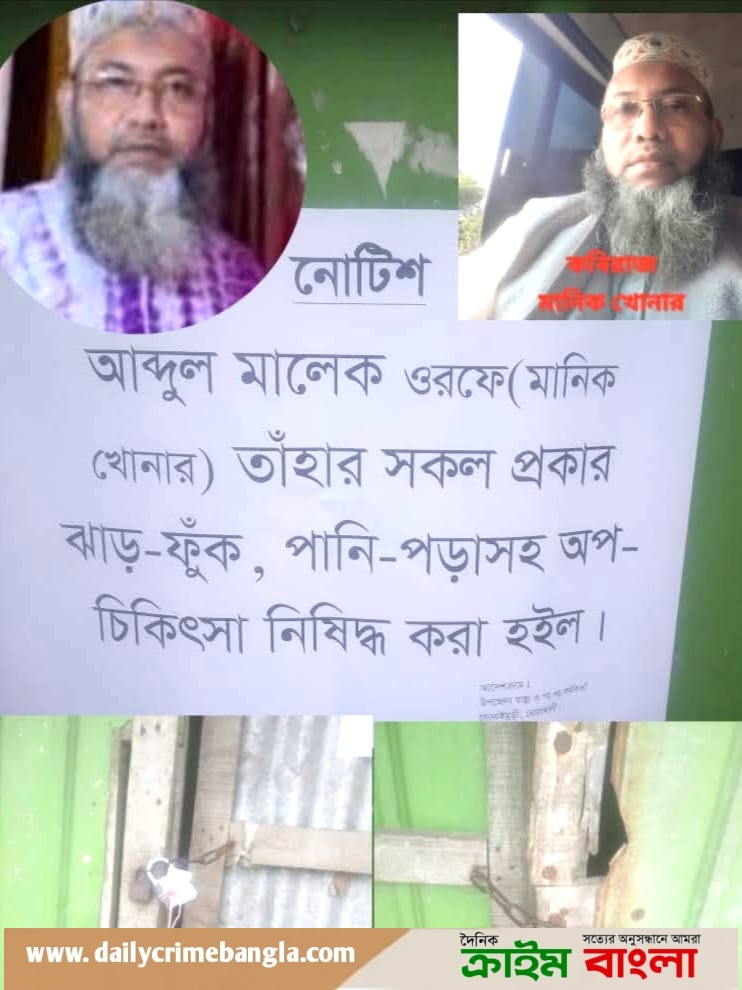 নোটিশ
কবিরাজ
মানিক খোনার
আব্দুল মালেক ওরফে(মানিক
খোনার) তাঁহার সকল প্রকার
ঝাড়-ফুঁক, পানি-পড়াসহ অপ-
চিকিৎসা নিষিদ্ধ করা হইল।
আদেশক্রমে।
উপজেলা স্বাস্থ্য ও পঃ পঃ কর্মকর্তা
সোনাইমুড়ী, নোয়াখালী
www. dailycrimebangla.com
দৈনিক
সত্যের অনুসন্ধানে আমরা
ক্রাইম বাংলা